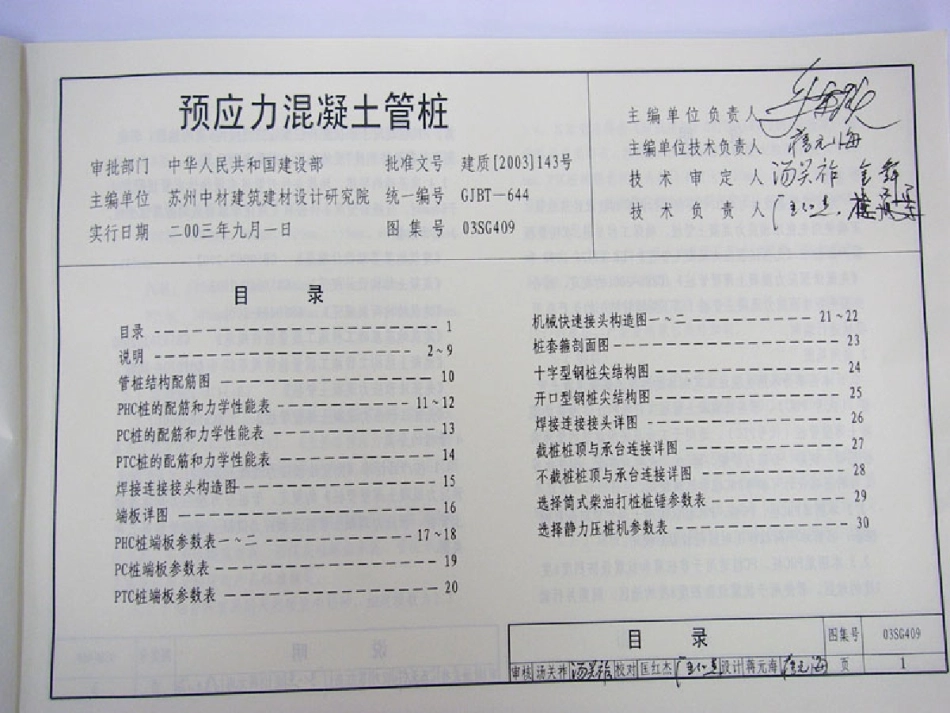 预应力混凝土管桩
审批部门 中华人民共和国建设部 批准文号 建质[2003]143号
主编单位 苏州中材建筑建材设计研究院 统一编号 GJBT-644
实行日期 二00三年九月一日 图集号 03SG409
主编单位负责人
主编单位技术负责人 蒋元海
技术审定人 汤关祚
技术负责人
目 录
目录 1
说明 2~9
管桩结构配筋图 10
PHC桩的配筋和力学性能表 11~12
PC桩的配筋和力学性能表 13
PTC桩的配筋和力学性能表 14
焊接连接接头构造图 15
端板详图 16
PHC桩端板参数表一~二 17~18
PC桩端板参数表 19
PTC桩端板参数表 20
机械快速接头构造图一~二 21~22
桩套箍剖面图 23
十字型钢桩尖结构图 24
开口型钢桩尖结构图 25
焊接连接接头详图 26
截桩桩顶与承台连接详图 27
不截桩桩顶与承台连接详图 28
选择筒式柴油打桩桩锤参数表 29
选择静力压桩机参数表 30
目 录 图集号 03SG409
审核 汤关祚 汤关祚 校对 匡红杰 设计 蒋元海 蒋元海 页 1